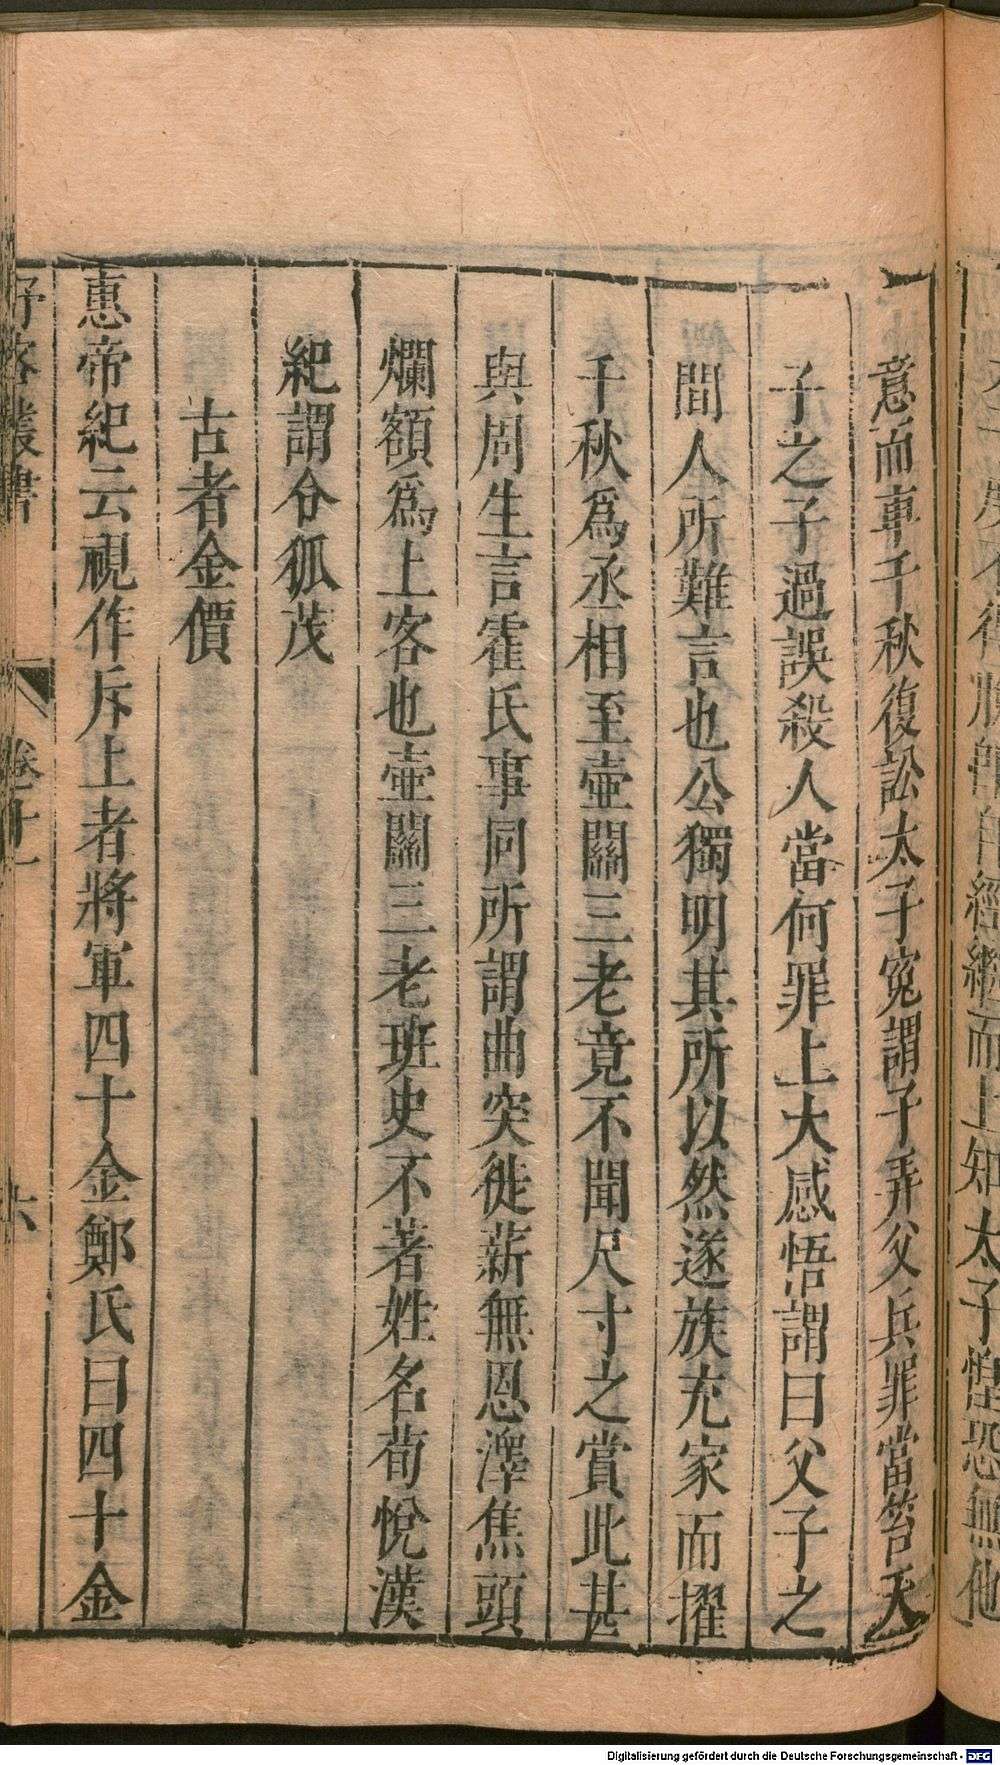 而上知太子惶恐無他
意而車千秋復訟太子寃謂子弄父兵罪當笞天
子之子過誤殺人當何罪上大感悟謂曰父子之
間人所難言也公獨明其所以然遂族充家而擢
千秋爲丞相至壷關三老竟不聞尺寸之賞此甚
與周生言霍氏事同所謂曲突徙薪無恩澤焦頭
爛額爲上客也壷關三老班史不著姓名荀悅漢
紀謂令狐茂
古者金價
惠帝紀云視作斥上者將軍四十金鄭氏曰四十金
叢書
卷十一
六
Digitalisierung gefördert durch die Deutsche Forschungsgemeinschaft - DFG